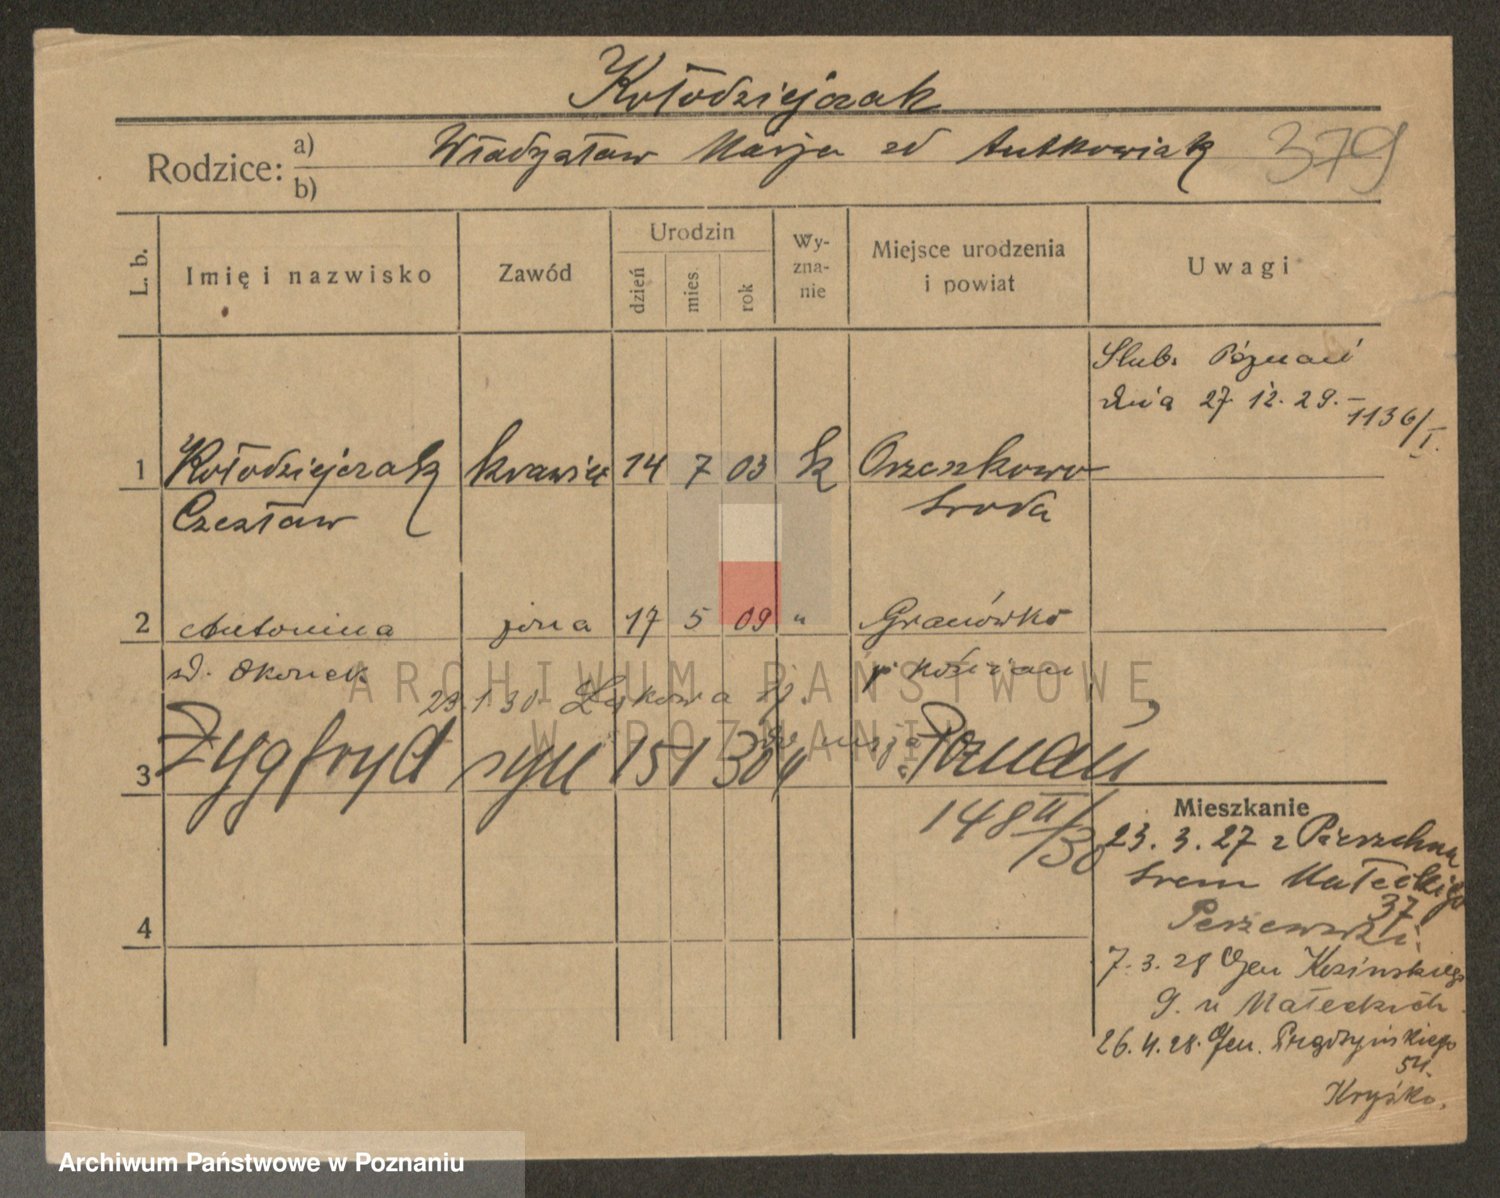 Kołodziejczak
Rodzice: a) Władysław Marja zd Antkowiak 379
b)
L. b. Imię i nazwisko Zawód Urodzin dzień mies. rok Wy-zna-nie Miejsce urodzenia i powiat Uwagi
Ślub. Poznań
dnia 27. 12. 29. – 1136/I.
1 Kołodziejczak krawiec 14 7 03 k Orzeszkowo
Czesław Środa
2 Antonina żona 17 5 09 " Granówko
zd. Okonek p. Kościan
29.1.30. Łąkowa
3 Zygfryd syn 15 1 30 Poznań
148 II/30
4
Mieszkanie
23. 3. 27 z Pierzchna
Srem Małeckiego
37
7. 3. 28 Gen Kosinskiego
9. u Małeckich
26. 4. 28. Gen. Prądzyńskiego
54.
Kryśko.
ARCHIWUM PAŃSTWOWE
W POZNANIU
Archiwum Państwowe w Poznaniu